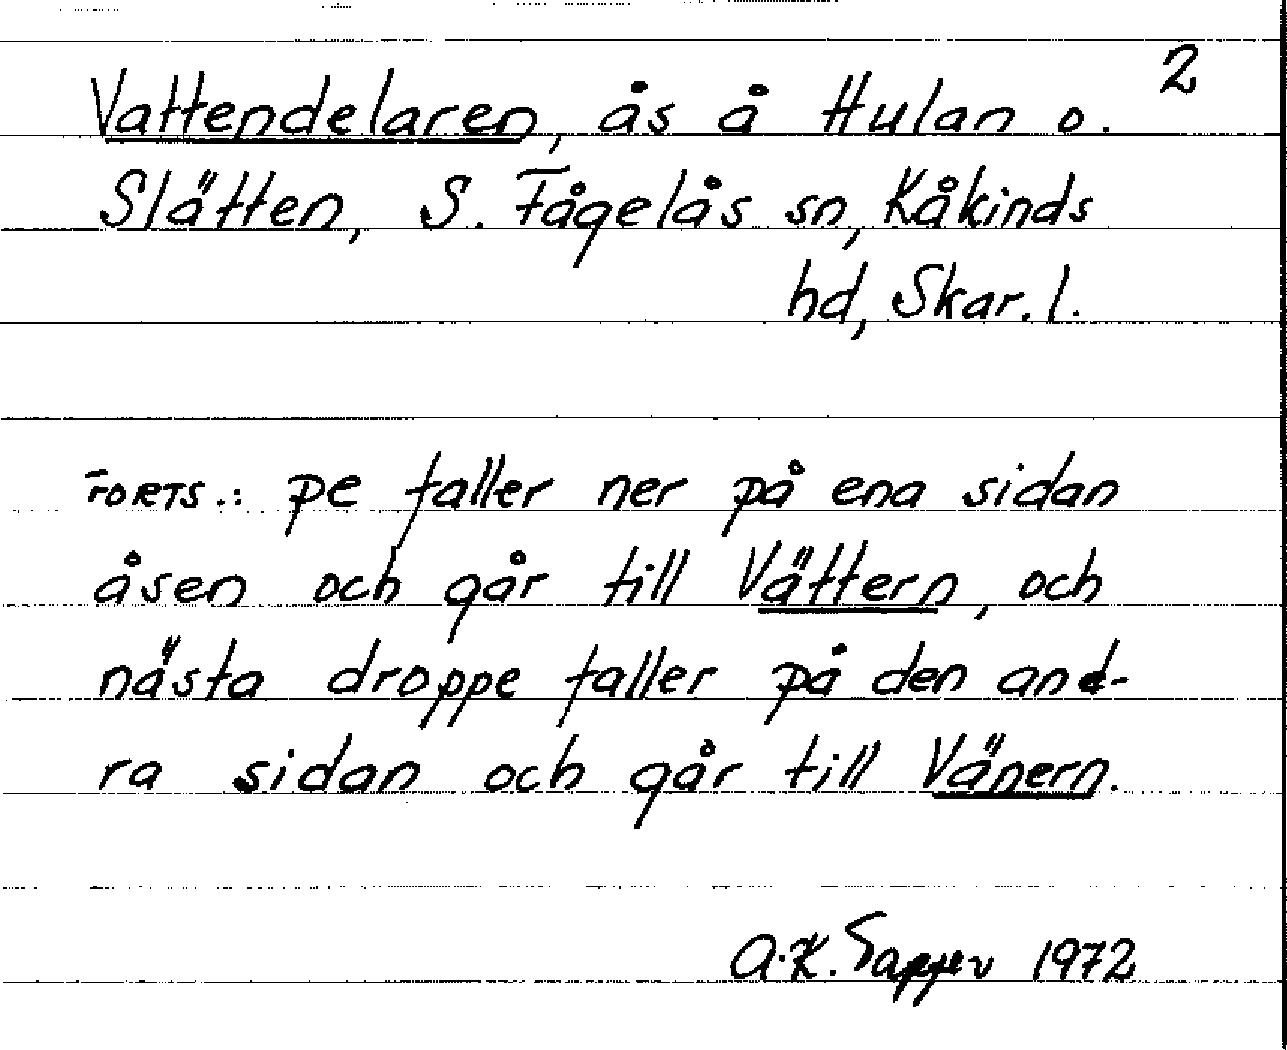 2
Vattendelaren, ås å Hulan o.
Slätten, S. Fågelås sn, Kåkinds
hd, Skar. l.
FORTS.: pe faller ner på ena sidan
åsen och går till Vättern, och
nästa droppe faller på den and-
ra sidan och går till Vänern.
A.K. 1972